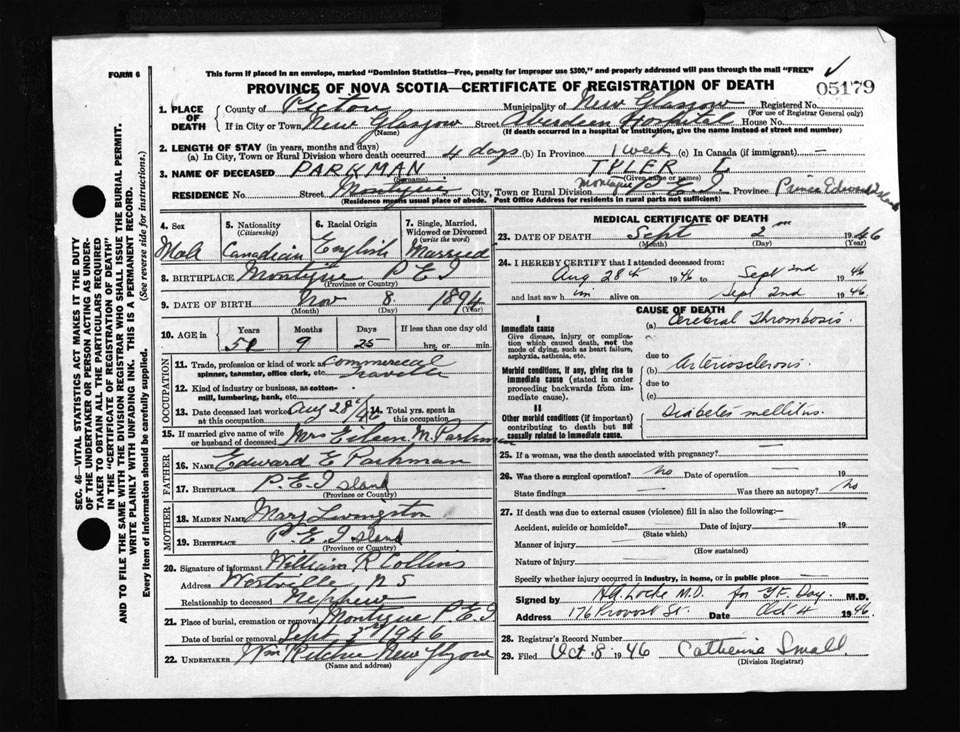 FORM 6
This form if placed in an envelope, marked "Dominion Statistics—Free, penalty for improper use $300," and properly addressed will pass through the mail "FREE"
PROVINCE OF NOVA SCOTIA—CERTIFICATE OF REGISTRATION OF DEATH
05179
1. PLACE OF DEATH
County of Pictou Municipality of New Glasgow Registered No.
(For use of Registrar General only)
If in City or Town New Glasgow Street Aberdeen Hospital House No.
(Name) (If death occurred in a hospital or institution, give the name instead of street and number)
2. LENGTH OF STAY (in years, months and days)
(a) In City, Town or Rural Division where death occurred 4 days (b) In Province 1 week (c) In Canada (if immigrant) —
3. NAME OF DECEASED PARKMAN TYLER L
(Surname) (Given name or names)
RESIDENCE No. Street Montague City, Town or Rural Division Montague P.E.I Province Prince Edward Island
(Residence means usual place of abode. Post Office Address for residents in rural parts not sufficient)
SEC. 46—VITAL STATISTICS ACT MAKES IT THE DUTY
OF THE UNDERTAKER OR PERSON ACTING AS UNDER-
TAKER TO OBTAIN ALL THE PARTICULARS REQUIRED
IN THE "CERTIFICATE OF REGISTRATION OF DEATH"
AND TO FILE THE SAME WITH THE DIVISION REGISTRAR WHO SHALL ISSUE THE BURIAL PERMIT.
WRITE PLAINLY WITH UNFADING INK. THIS IS A PERMANENT RECORD.
Every item of information should be carefully supplied. (See reverse side for instructions.)
4. Sex
Male
5. Nationality
(Citizenship)
Canadian
6. Racial Origin
English
7. Single, Married,
Widowed or Divorced
(write the word)
Married
8. BIRTHPLACE Montague P E I
(Province or Country)
9. DATE OF BIRTH Nov 8 1894
(Month) (Day) (Year)
10. AGE in Years Months Days If less than one day old
51 9 25 hrs. or min.
OCCUPATION
11. Trade, profession or kind of work as commercial
spinner, teamster, office clerk, etc. traveller
12. Kind of industry or business, as cotton-
mill, lumbering, bank, etc.
13. Date deceased last worked at this occupation Aug 28th/46 14. Total yrs. spent in this occupation
15. If married give name of wife or husband of deceased Mrs Eileen M. Parkman
FATHER
16. NAME Edward E Parkman
17. BIRTHPLACE P.E. Island
(Province or Country)
MOTHER
18. MAIDEN NAME Mary Livingston
19. BIRTHPLACE P.E. Island
(Province or Country)
20. Signature of informant William R Collins
Address Westville, N S
Relationship to deceased Nephew
21. Place of burial, cremation or removal Montague P E I
Date of burial or removal Sept 3rd 1946
22. UNDERTAKER Wm Ritchie New Glasgow
(Name and address)
MEDICAL CERTIFICATE OF DEATH
23. DATE OF DEATH Sept 2nd 1946
(Month) (Day) (Year)
24. I HEREBY CERTIFY that I attended deceased from:
Aug 28th 1946 to Sept 2nd 1946
and last saw him alive on Sept 2nd 1946
CAUSE OF DEATH
I
Immediate cause
Give disease, injury or complica-
tion which caused death, not the
mode of dying, such as heart failure,
asphyxia, asthenia, etc.
(a) Cerebral Thrombosis.
due to
Morbid conditions, if any, giving rise to
immediate cause (stated in order
proceeding backwards from im-
mediate cause).
(b) Arteriosclerosis.
due to
(c)
II
Other morbid conditions (if important)
contributing to death but not
causally related to immediate cause.
Diabetes mellitus.
25. If a woman, was the death associated with pregnancy? —
26. Was there a surgical operation? No Date of operation — 19
State findings — Was there an autopsy? No
27. If death was due to external causes (violence) fill in also the following:—
Accident, suicide or homicide? Date of injury 19
(State which)
Manner of injury
(How sustained)
Nature of injury
Specify whether injury occurred in industry, in home, or in public place —
Signed by H.A. Locke M.D. for G.F. Day. M.D.
Address 176 Provost St. Date Oct 4 1946.
28. Registrar's Record Number
29. Filed Oct 8 1946 Catherine Small.
(Division Registrar)